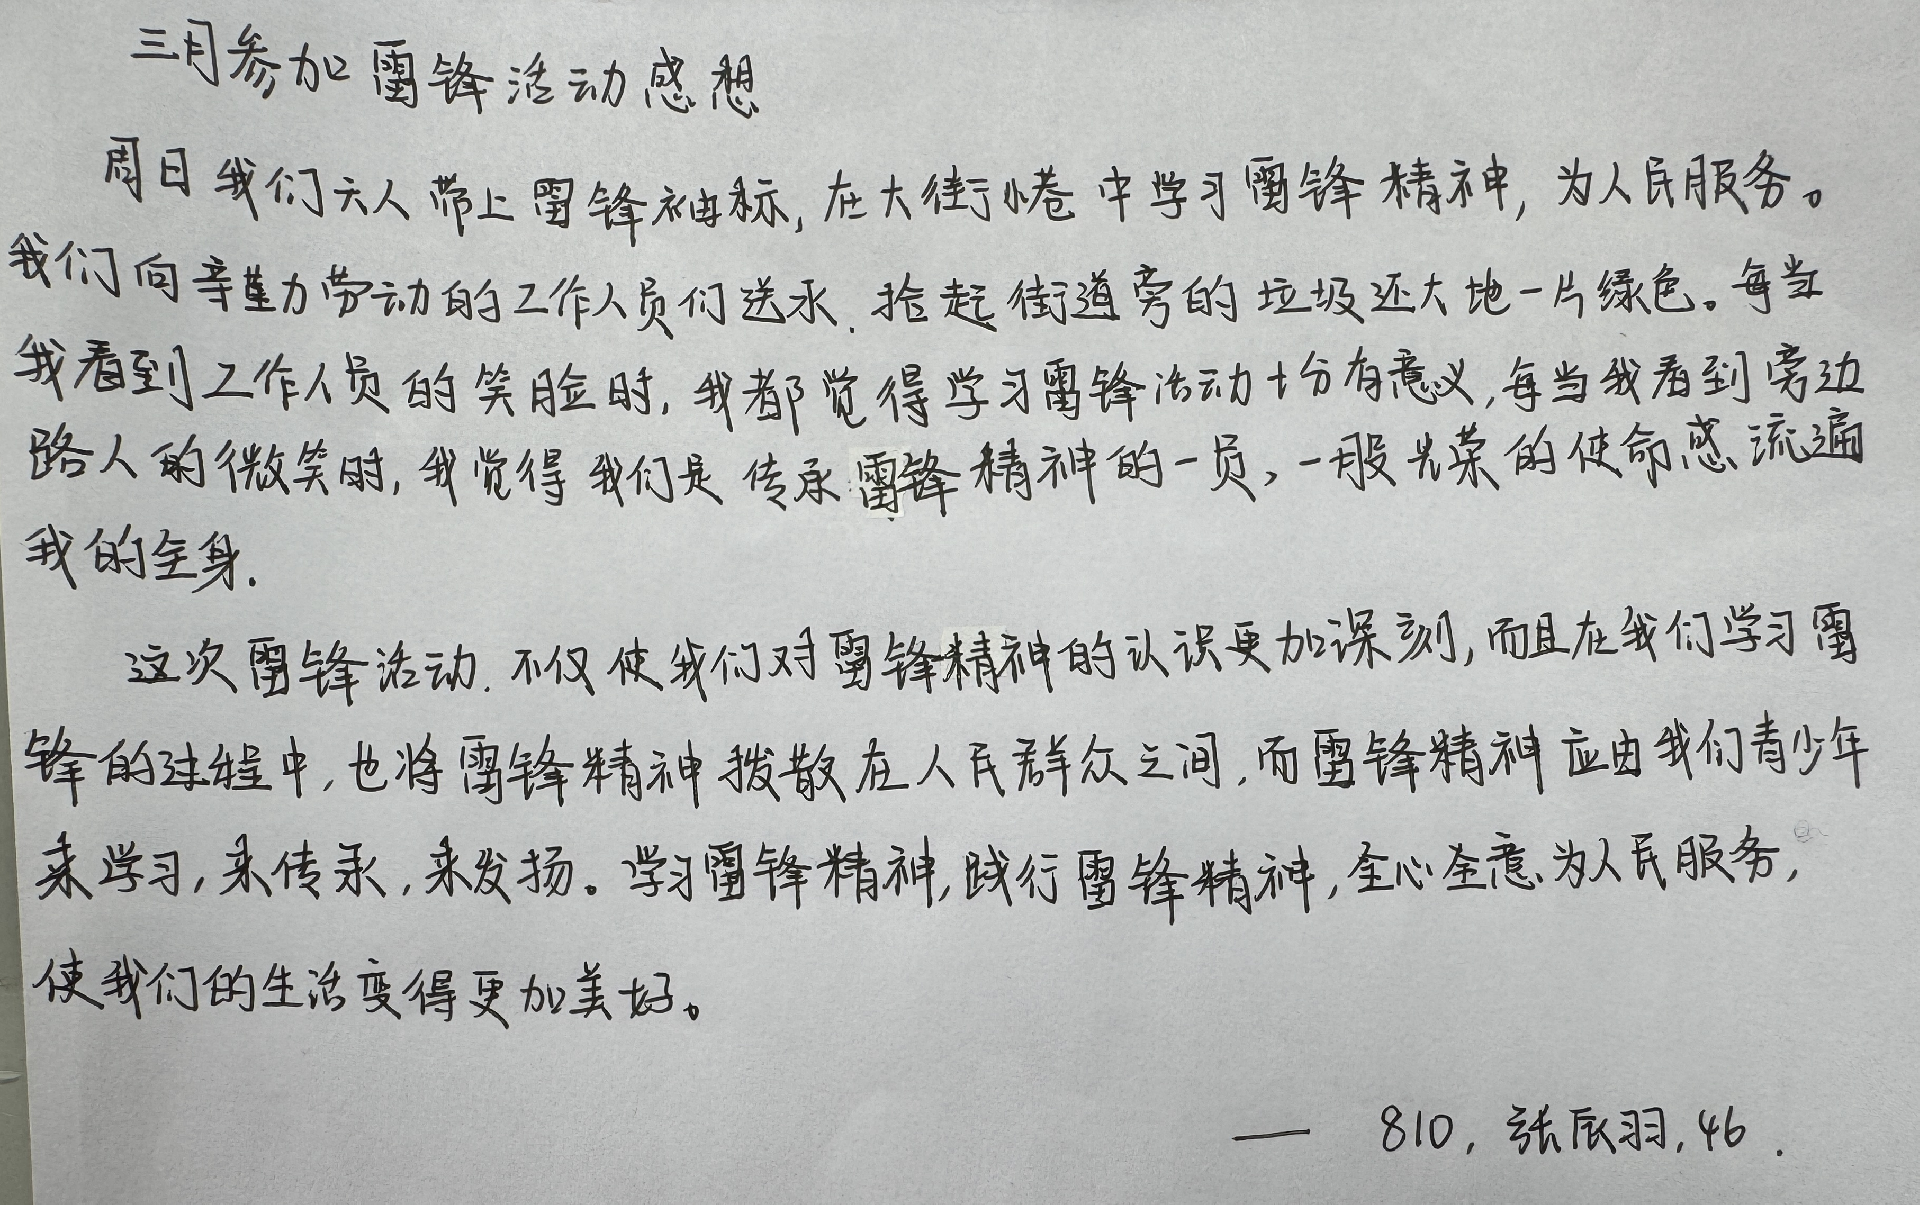 三月参加雷锋活动感想
周日我们六人带上雷锋袖标,在大街小巷中学习雷锋精神,为人民服务。
我们向辛勤劳动的工作人员们送水、捡起街道旁的垃圾还大地一片绿色。每当
我看到工作人员的笑脸时,我都觉得学习雷锋活动十分有意义,每当我看到旁边
路人的微笑时,我觉得我们是传承雷锋精神的一员,一股光荣的使命感流遍
我的全身.
这次雷锋活动.不仅使我们对雷锋精神的认识更加深刻,而且在我们学习雷
锋的过程中,也将雷锋精神拨散在人民群众之间,而雷锋精神应由我们青少年
来学习,来传承,来发扬。学习雷锋精神,践行雷锋精神,全心全意为人民服务,
使我们的生活变得更加美好。
— 810,张辰羽,46.